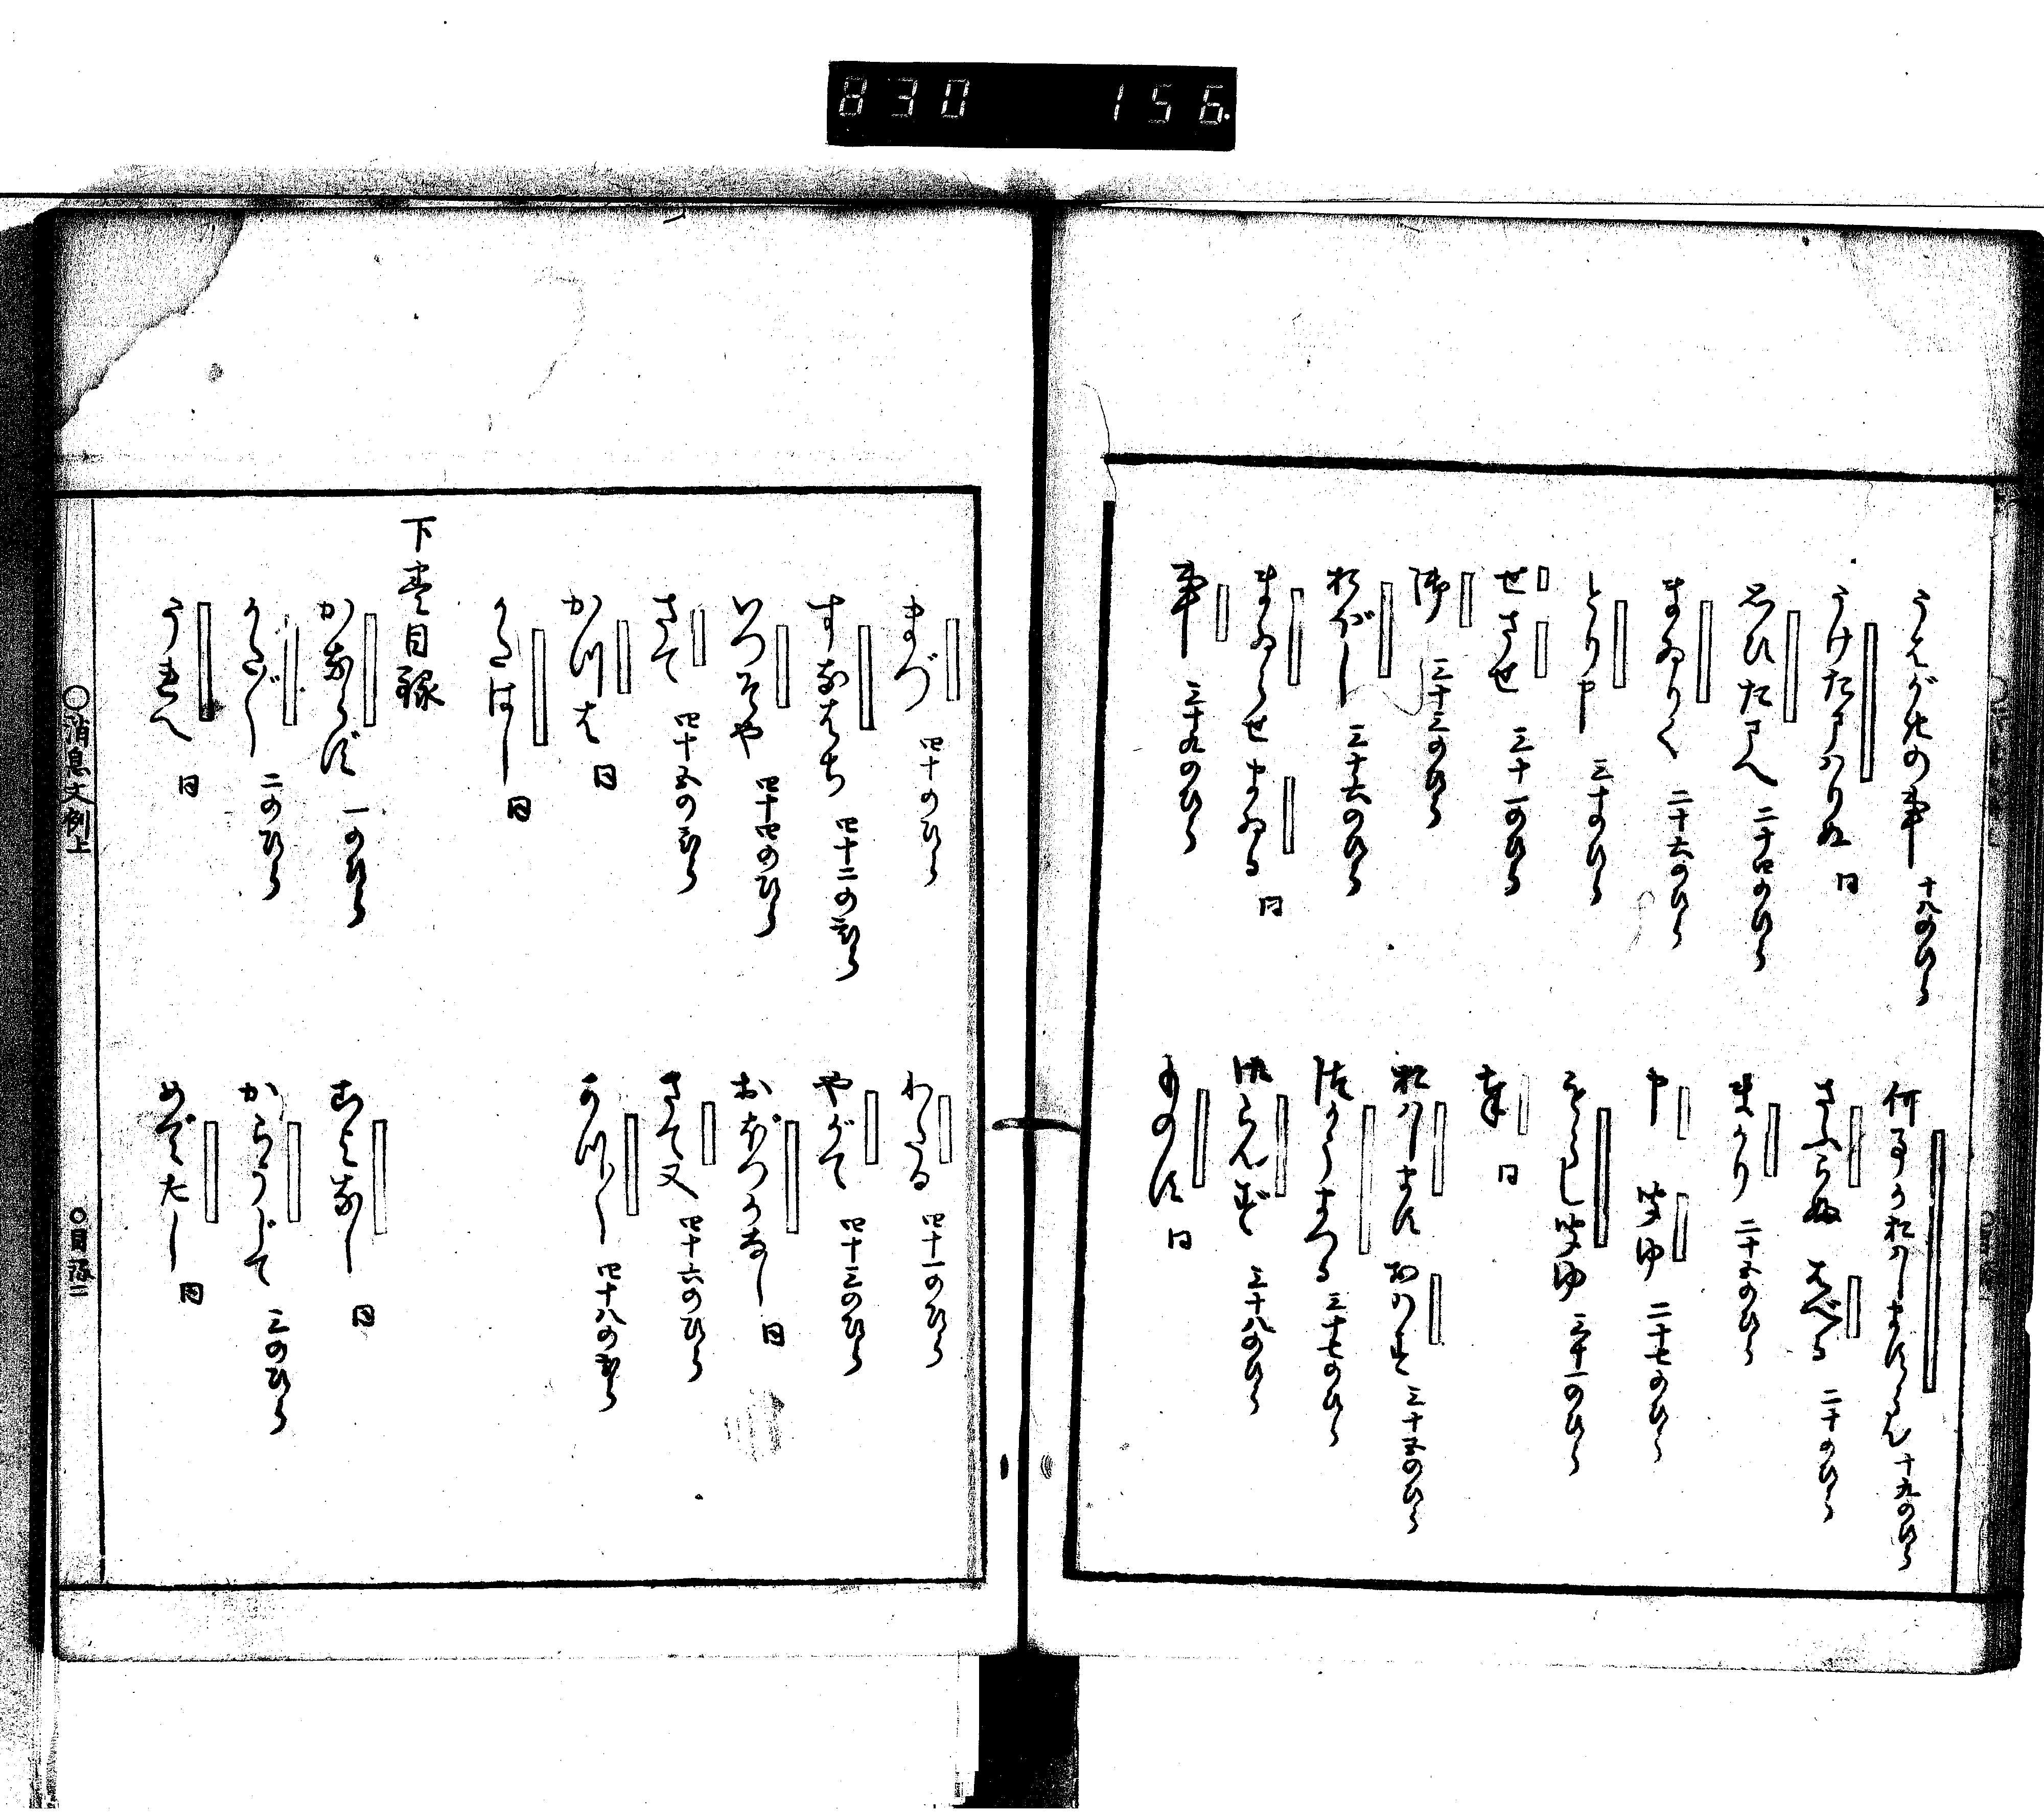 830 156
うはがきの事 十八のひら
うけたまはりぬ 同
思ひたまへ 二十四のひら
まゐりく 二十六のひら
とり申 三十のひら
せさせ 三十一のひら
御 三十三のひら
おぼし 三十六のひら
まゐらせ まゐる 同
事 三十九のひら
何事かおはしますらん 十九のひら
さふらふ はべる 二十のひら
まかり 二十五のひら
申 きこゆ 二十七のひら
おはします おはす 三十五のひら
つかうまつる 三十七のひら
御らんず 三十八のひら
ものす 同
まづ 四十のひら
すなはち 四十二のひら
いつぞや 四十四のひら
さて 四十五のひら
かつは 同
くはし 同
わたる 四十一のひら
やがて 四十三のひら
おぼつかなし 同
さて又 四十六のひら
四十八のひら
下巻目録
かならず 一のひら
二のひら
うれへ 同
こよなし 同
からうじて 三のひら
めでたし 同
○消息文例上 ○目録二